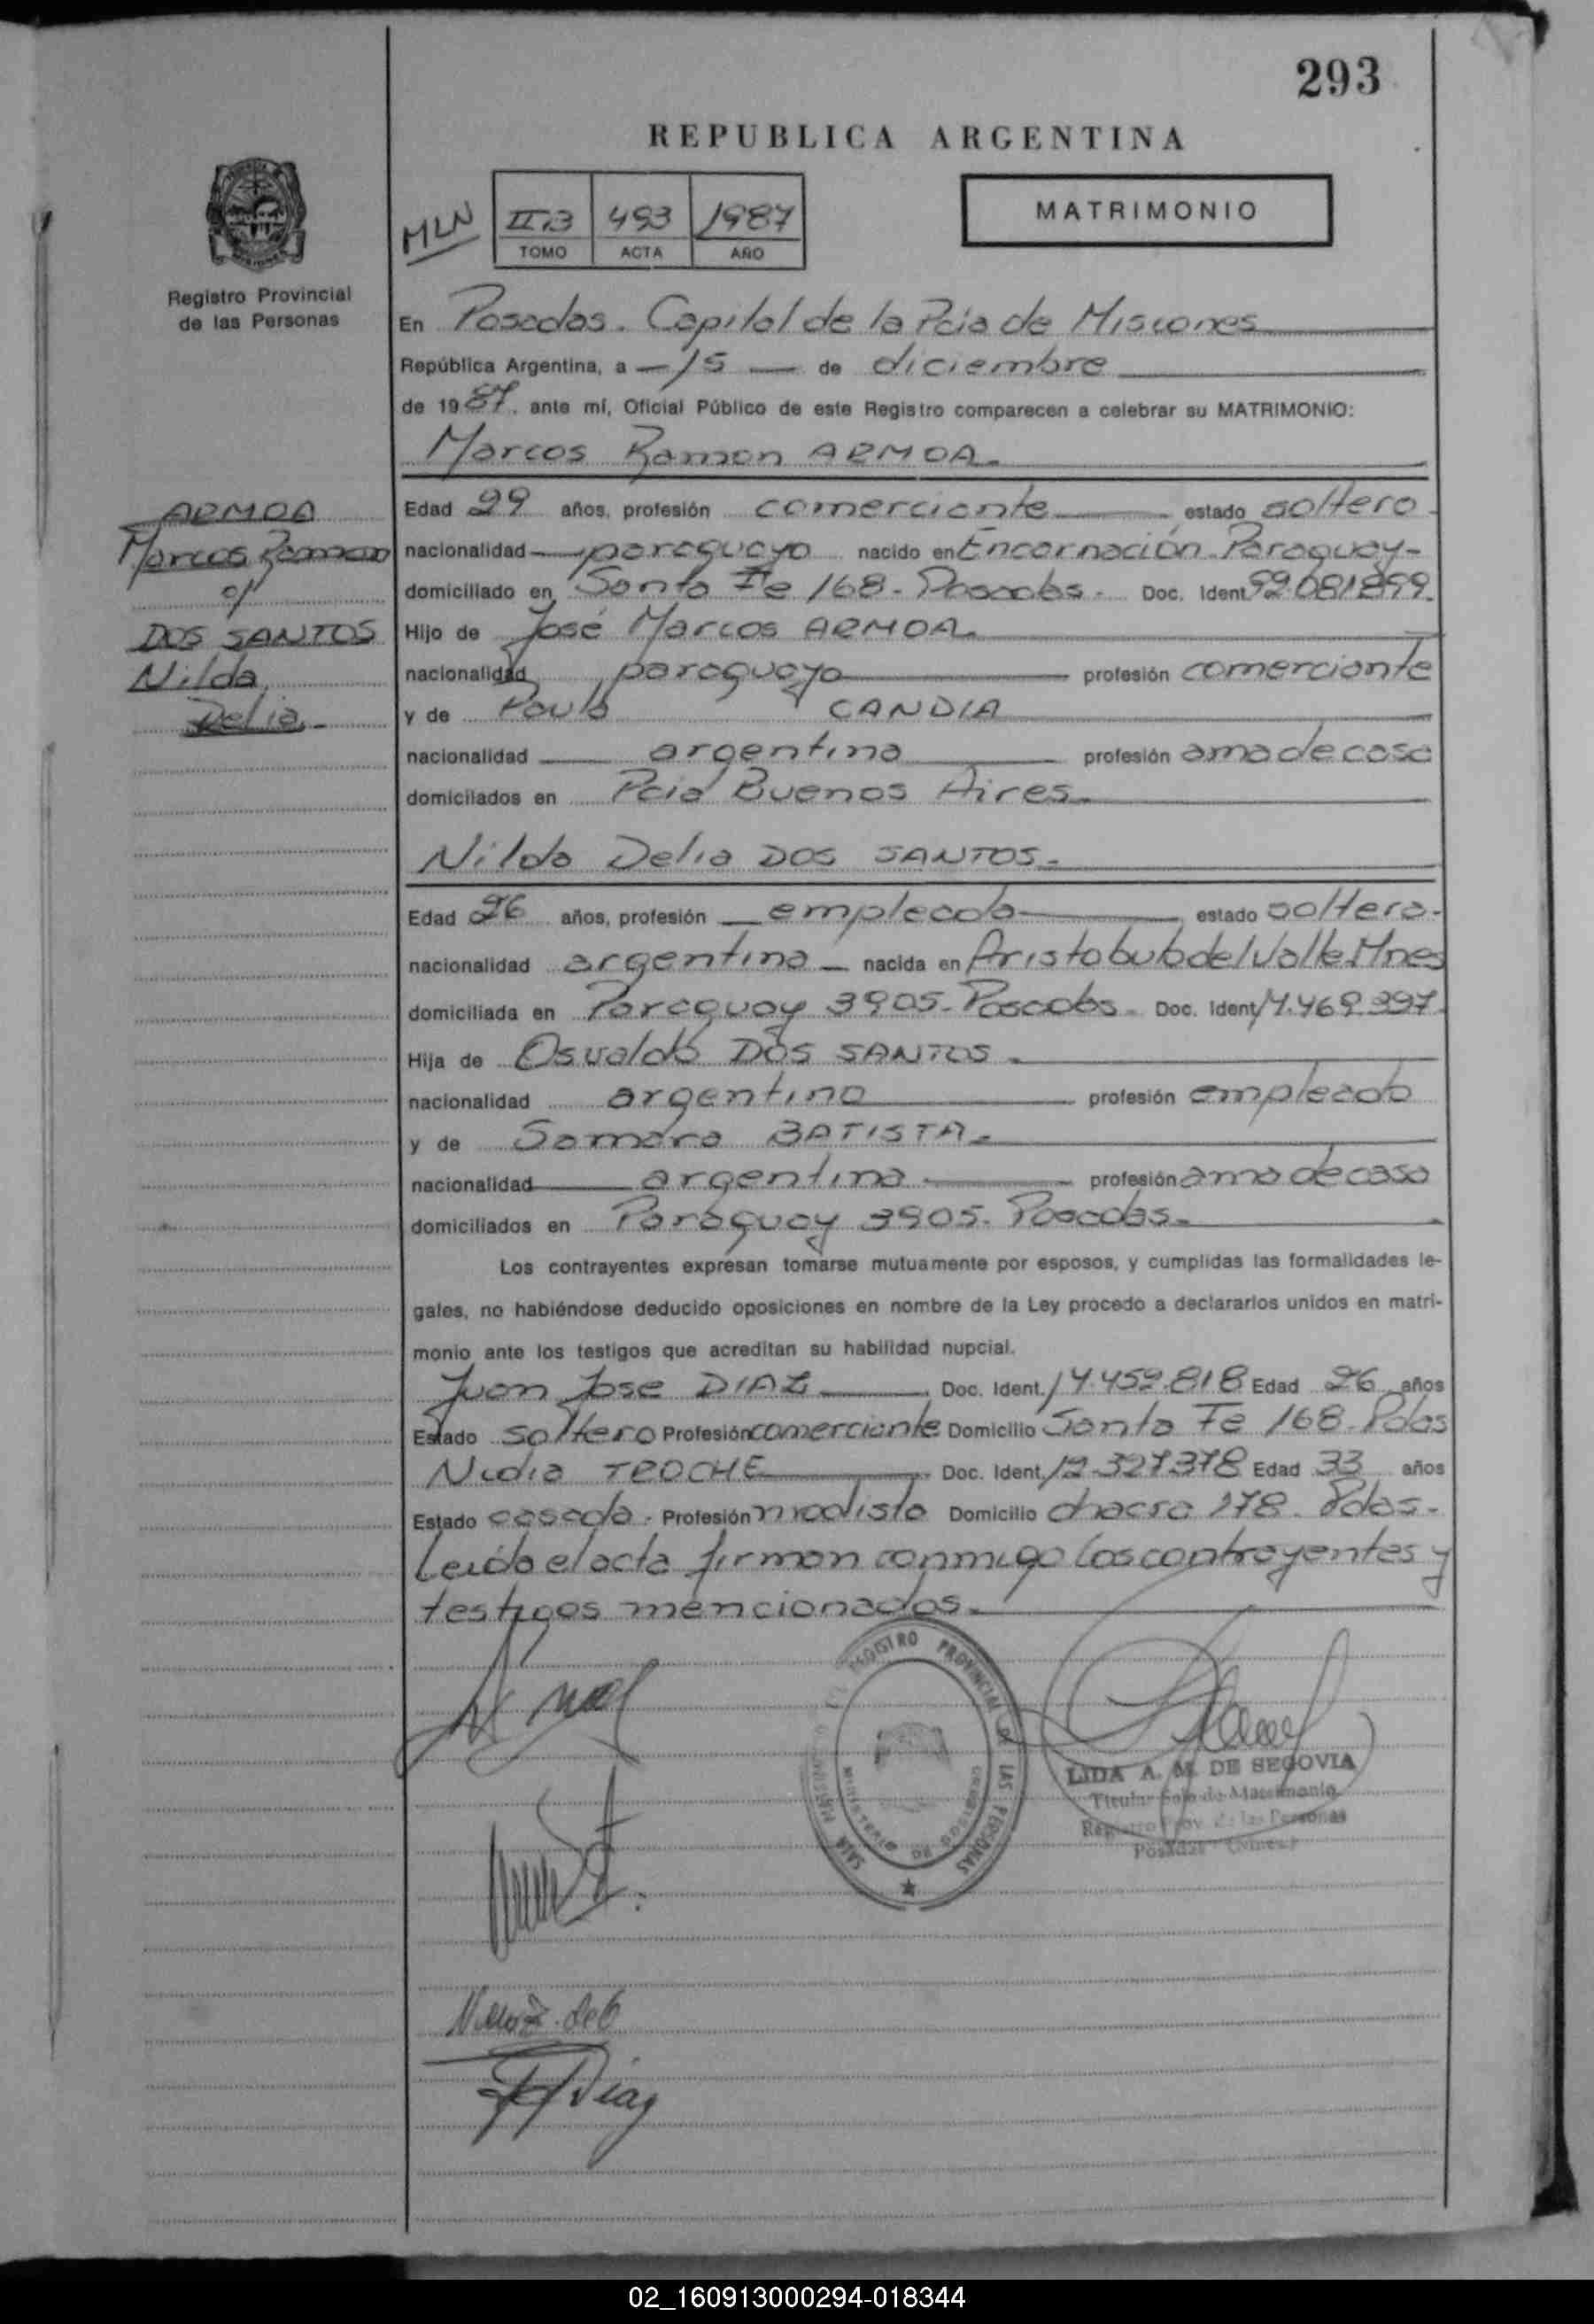 293
REPUBLICA ARGENTINA
MLN
II B 493 1987
TOMO ACTA AÑO
MATRIMONIO
Registro Provincial
de las Personas
En Posadas. Capital de la Pcia de Misiones
República Argentina, a - 15 - de diciembre
de 1987. ante mí, Oficial Público de este Registro comparecen a celebrar su MATRIMONIO:
Marcos Ramon ARMOA.
ARMOA
Marcos Ramon
c/
DOS SANTOS
Nilda
Delia.-
Edad 29 años, profesión comerciante estado soltero-
nacionalidad paraguayo nacido en Encarnación-Paraguay-
domiciliado en Santa Fe 168-Posadas- Doc. Ident 92.081899.
Hijo de José Marcos ARMOA.
nacionalidad paraguayo profesión comerciante
y de Paula CANDIA
nacionalidad argentina profesión ama de casa
domicilados en Pcia Buenos Aires.
Nilda Delia DOS SANTOS.-
Edad 26 años, profesión empleada estado soltera-
nacionalidad argentina - nacida en Aristobulo del Valle. Mnes
domiciliada en Paraguay 3905-Posadas- Doc. Ident 14.469.397.
Hija de Osvaldo DOS SANTOS.
nacionalidad argentino profesión empleado
y de Samara BATISTA.-
nacionalidad argentina profesión ama de casa
domiciliados en Paraguay 3905-Posadas.-
Los contrayentes expresan tomarse mutuamente por esposos, y cumplidas las formalidades le-
gales, no habiéndose deducido oposiciones en nombre de la Ley procedo a declararlos unidos en matri-
monio ante los testigos que acreditan su habilidad nupcial.
Juan Jose DIAZ Doc. Ident. 14.459.818 Edad 26 años
Estado soltero Profesión comerciante Domicilio Santa Fe 168-Pdas
Nidia TROCHE Doc. Ident. 12.327.378 Edad 33 años
Estado casada. Profesión modista Domicilio chacra 178. Pdas-
Leída el acta firman conmigo los contrayentes y
testigos mencionados.-
REGISTRO PROVINCIAL DE LAS PERSONAS
MINISTERIO DE GOBIERNO
LIDA A. M. DE SEGOVIA
Titular Sala de Matrimonio
Registro Prov. de las Personas
Posadas (Mnes.)
Diaz
02_160913000294-018344